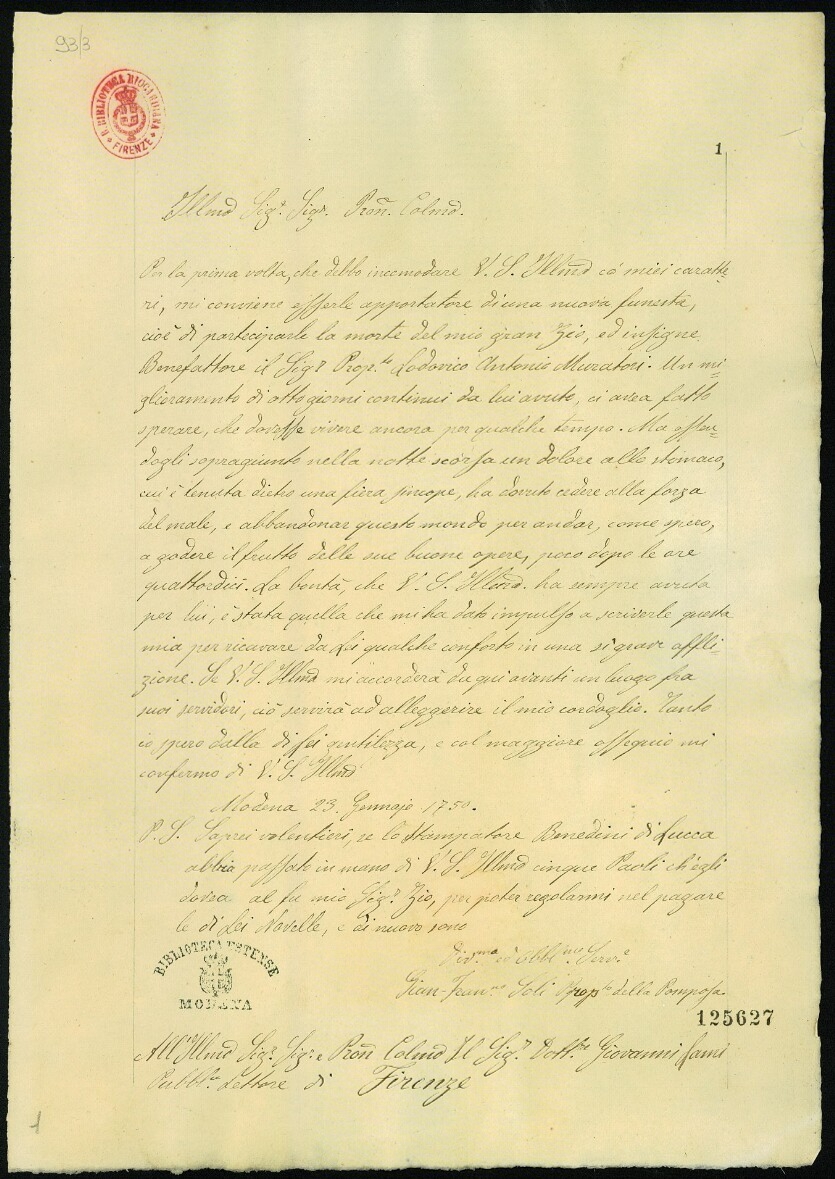 93/3
R. BIBLIOTECA RICCARDIANA
FIRENZE
1
Illmo Sigr. Sigr. Pron. Colmo.
Per la prima volta, che debbo incomodare V. S. Illma co' miei caratte-
ri, mi conviene esserle apportatore di una nuova funesta,
cioè di parteciparle la morte del mio gran Zio, ed insigne
Benefattore il Sigr Prop.to Lodovico Antonio Muratori. Un mi-
glioramento di otto giorni continui da lui avuto, ci avea fatto
sperare, che dovesse vivere ancora per qualche tempo. Ma essen-
dogli sopragiunto nella notte scorsa un dolore allo stomaco,
cui è tenuta dietro una fiera sincope, ha dovuto cedere alla forza
del male, e abbandonar questo mondo per andar, come spero,
a godere il frutto delle sue buone opere, poco dopo le ore
quattordici. La bontà, che V. S. Illma. ha sempre avuta
per lui, è stata quella che mi ha dato impulso a scriverle questa
mia per ricavare da Lei qualche conforto in una sì grave affli-
zione. Se V. S. Illma mi accorderà da qui avanti un luogo fra
suoi servidori, ciò servirà ad alleggerire il mio cordoglio. Tanto
io spero dalla di Lei gentilezza, e col maggiore ossequio mi
confermo di V. S. Illma
Modena 23. Gennajo 1750.
P. S. Saprei volentieri, se lo Stampatore Benedini di Lucca
abbia passato in mano di V. S. Illma cinque Paoli ch'egli
dovea al fu mio Sigr. Zio, per poter regolarmi nel pagare
le di Lei Novelle, e di nuovo sono
Div.mo ed Obbl.mo Serv.e
Gian-Fran.co Soli Prop.to della Pomposa
BIBLIOTECA ESTENSE
MODENA
125627
All'Illmo Sigr. Sigr. e Pron Colmo Il Sigr. Dott.re Giovanni Lami
Pubbl.co Lettore di Firenze
1